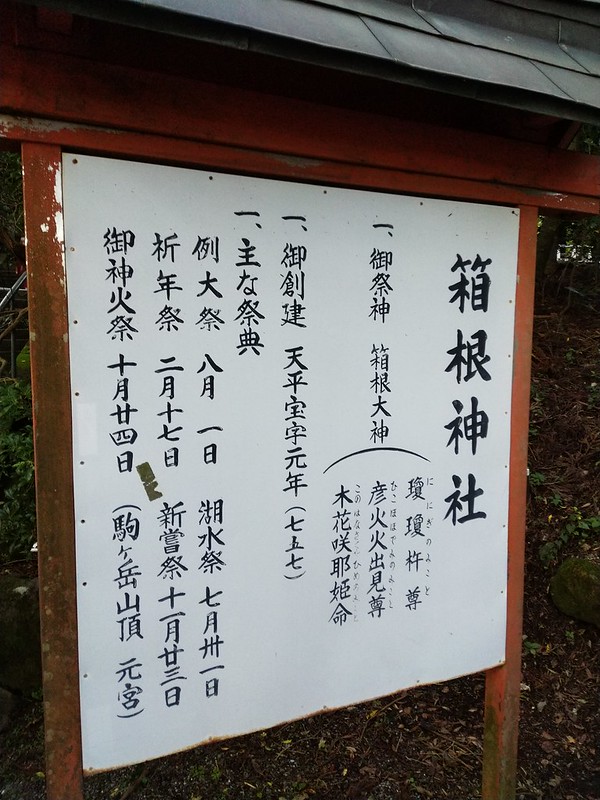 箱根神社
一、御祭神 箱根大神
瓊瓊杵尊
ににぎのみこと
彦火火出見尊
ひこほほでみのみこと
木花咲耶姫命
このはなさくやひめのみこと
一、御創建 天平宝字元年（七五七）
一、主な祭典
例大祭 八月一日 湖水祭 七月卅一日
祈年祭 二月十七日 新嘗祭 十一月廿三日
御神火祭 十月廿四日（駒ヶ岳山頂 元宮）